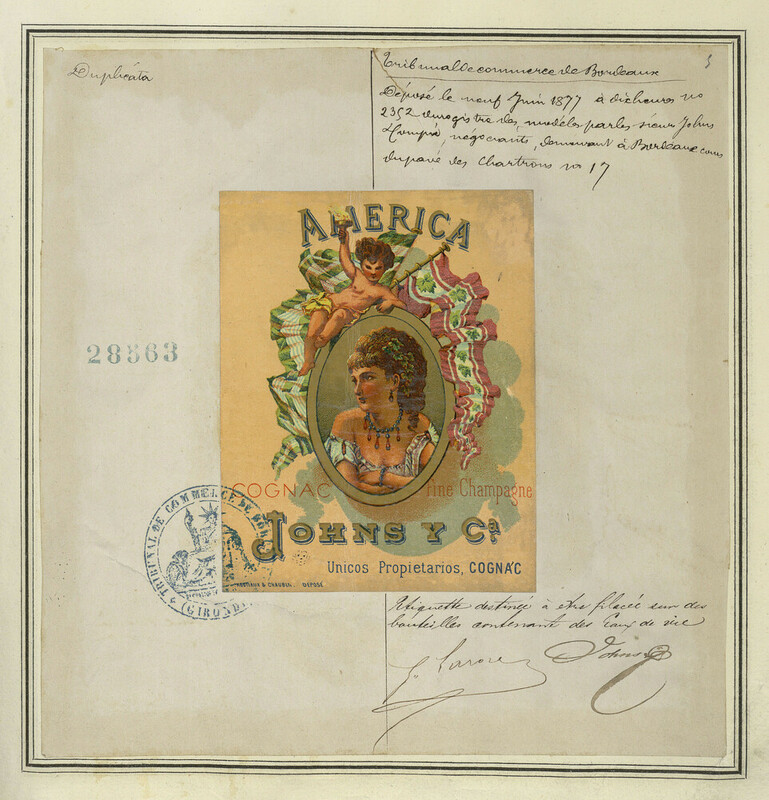 Duplicata
5
Tribunal de commerce de Bordeaux
Déposé le neuf Juin 1877 à dix heures no
2352 du registre des modèles par les sieurs Johns
& Compie, négociants, demeurant à Bordeaux cours
du pavé des Chartrons no 17
AMERICA
28563
COGNAC Fine Champagne
JOHNS Y Ca.
Unicos Propietarios, COGNAC
DÉPOSÉ
TRIBUNAL DE COMMERCE DE BOR
(GIRONDE)
Etiquette destinée à être placée sur des
bouteilles contenant des Eaux de vie
Johns